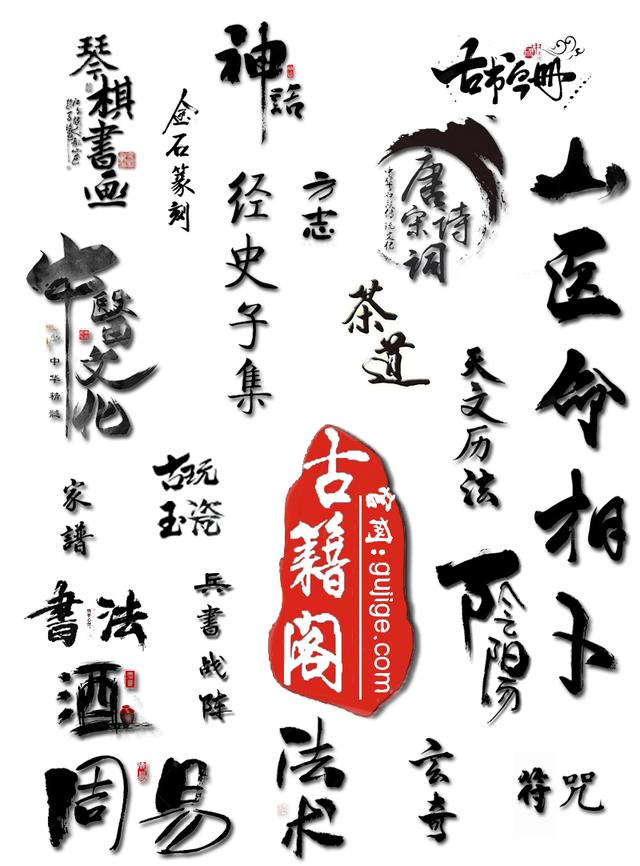 琴棋书画
神話
古书今册
金石篆刻
经史子集
方志
唐诗
宋词
山医命相卜
中醫文化
中华精髓
茶道
天文历法
古玩
玉瓷
家譜
古籍阁
官网:gujige.com
書法
兵書战阵
陰陽
酒
周易
法术
玄奇
符咒